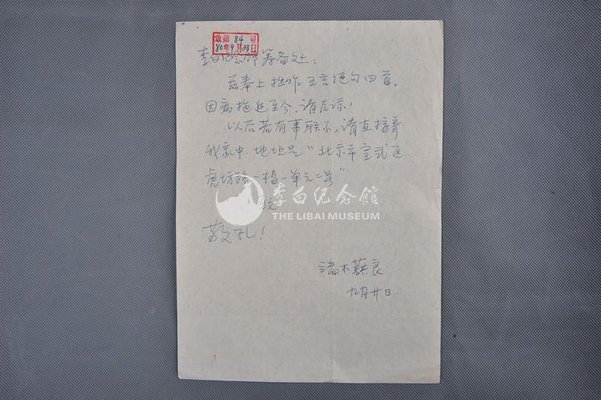 收函 84 号
80年9月28日
李白纪念馆筹备处：
兹奉上拙作五言绝句四首，
因病拖延至今，请原谅！
以后若有事联系，请直接寄
我家中 地址是“北京市宣武区
虎坊路一楼一单元二号”
李白纪念馆
THE LIBAI MUSEUM
敬礼！
端木蕻良
九月廿日